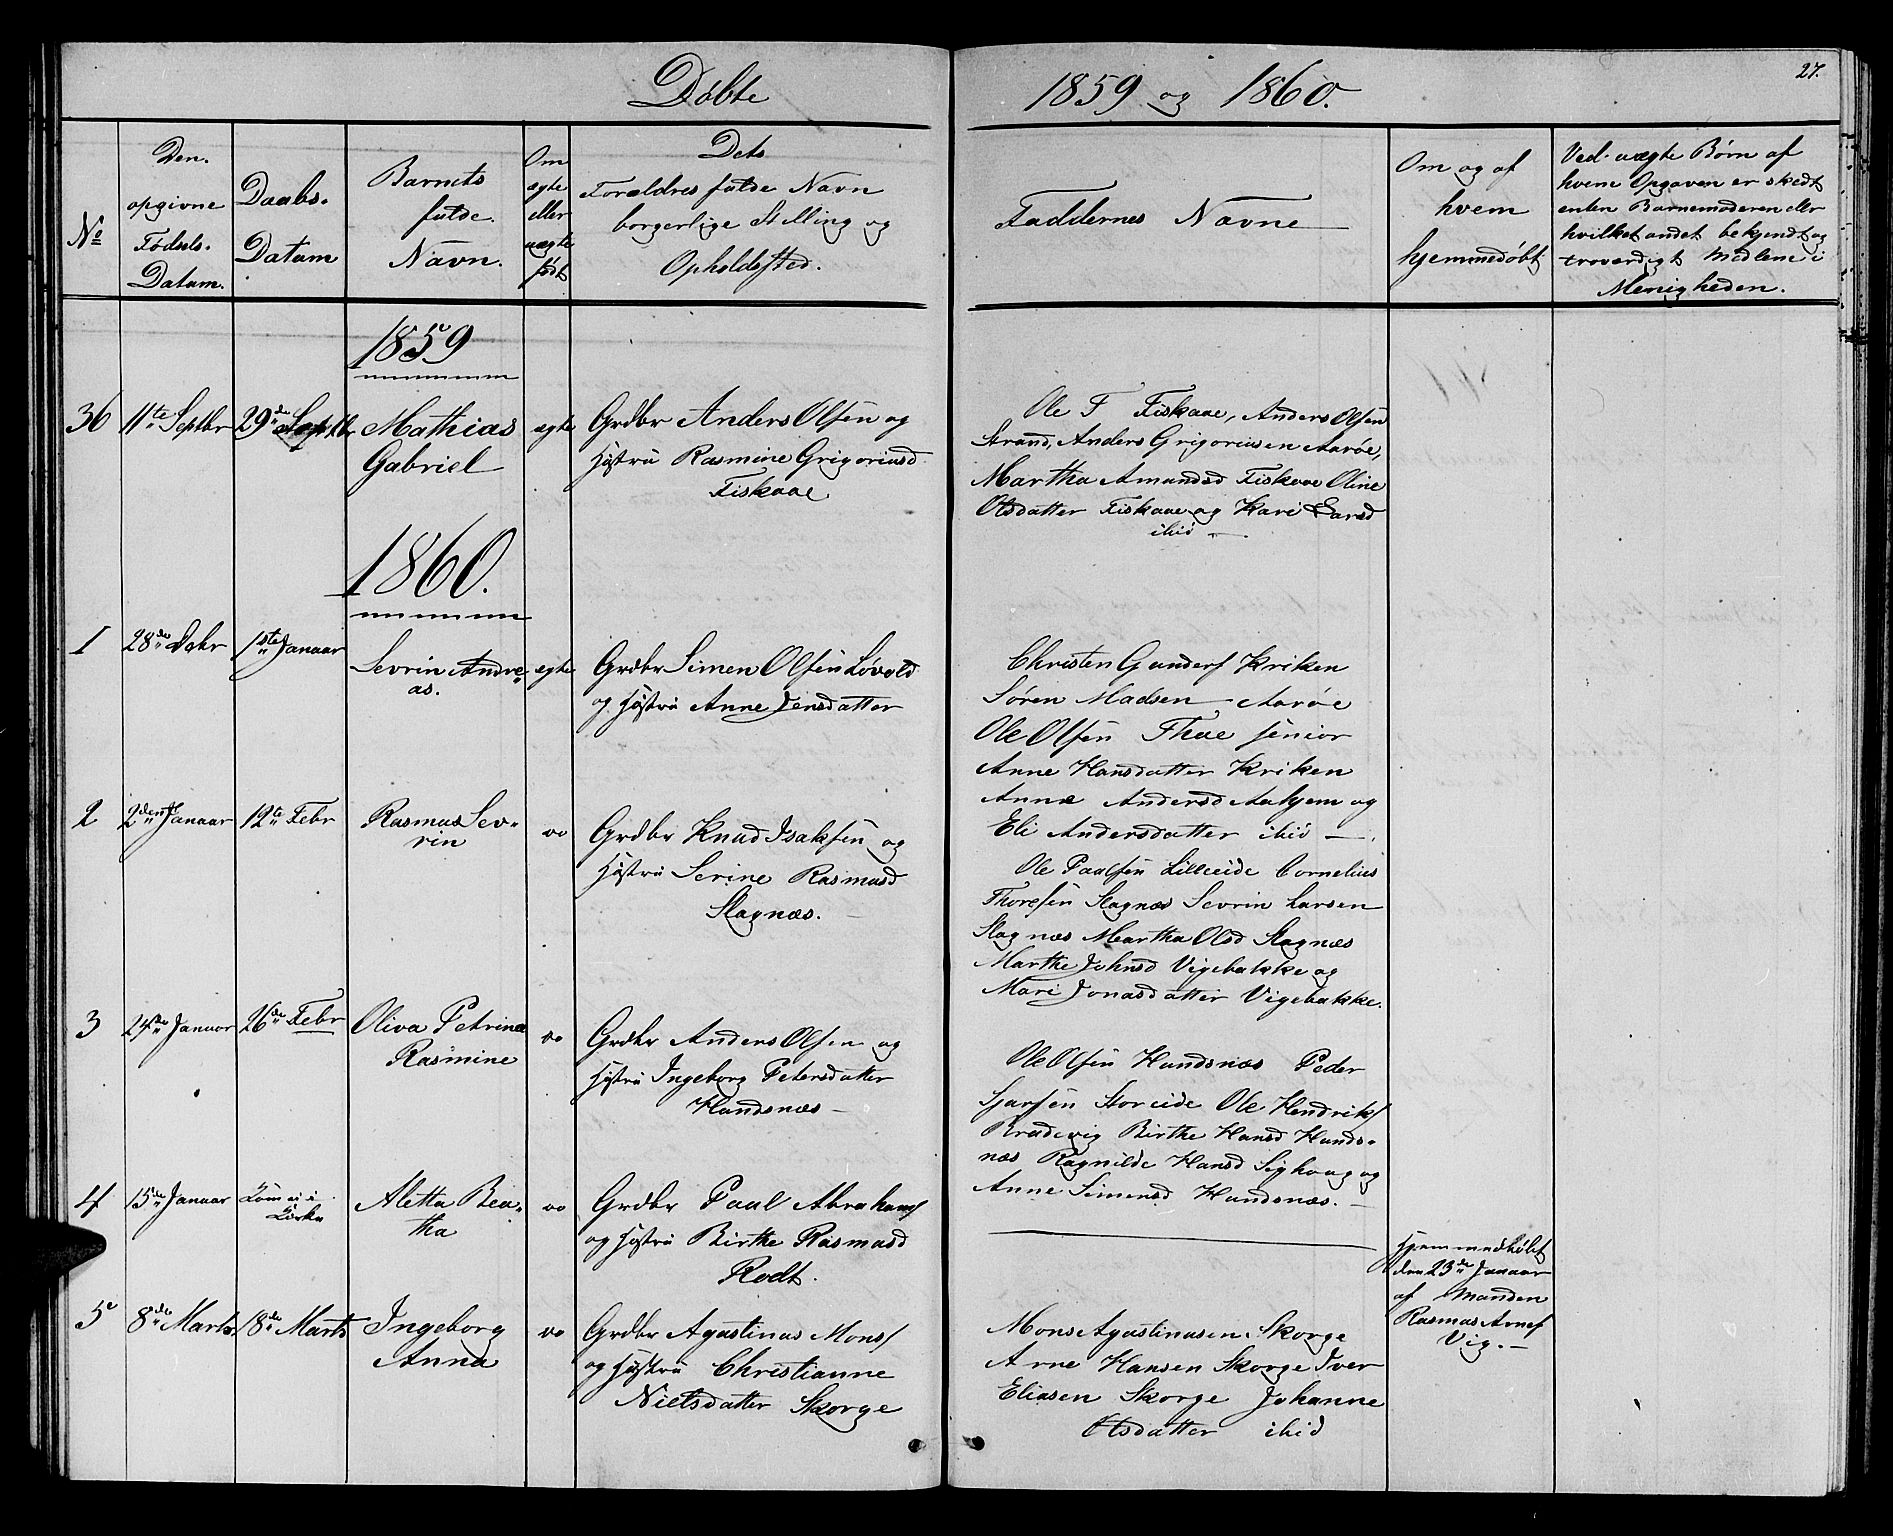 Døbte
1859 og 1860.
27.
No
Den
opgivne
Fødsels-
Datum.
Daabs-
Datum
Barnets
fulde
Navn.
Om
ægte
eller
uægte
født
Dets
Forældres fulde Navn
borgerlige Stilling og
Opholdssted.
Faddernes Navne
Om og af
hvem
hjemmedøbt
Ved uægte Børn af
hvem Opgaven er skedt
enten Barnemoderen eller
hvilket andet bekjendt og
troværdigt Medlem i
Menigheden.
1859
36 11te Septbr 29de Septbr Mathias
Gabriel
ægte
Grdbr Anders Olsen og
Hustru Rasmine Grigoriusd
Fiskaae
Ole F Fiskaae, Anders Olsen
Strand, Anders Grigoriusen Aarøe,
Martha Amundsd Fiskaae Oline
Olsdatter Fiskaae og Kari Larsd
ibid –
1860.
1 28de Debr 1ste Januar Sevrin Andre
as.
ægte
Grdbr Simen Olsen Løvold
og Hustru Anne Jensdatter
Christen Gunders Kriken
Søren Madsen Aarøe
Ole Olsen Thue senior
Anne Hansdatter Kriken
Anne Andersd Aahjem og
Eli Andersdatter ibid –
2 2den Januar 12te Febr Rasmus Sev-
rin
vo
Grdbr Knud Isaksen og
Hustru Serine Rasmusd
Slagnæs. –
Ole Paalsen Lilleeide Cornelius
Thoresen Slagnæs Sevrin Larsen
Slagnæs Martha Olsd Slagnæs
Marthe Johnsd Vigebakke og
Mari Jonasdatter Vigebakke.
3 24de Januar 26de Febr Oliva Petrine
Rasmine
vo
Grdbr Anders Olsen og
Hustru Ingeborg Petersdatter
Hundsnæs –
Ole Olsen Hundsnæs Peder
Sjursen Storeide Ole Hendriks
Brudevig Birthe Hansd Hunds-
næs Ragnilde Hansd Sighaug og
Anne Simensd Hundsnæs. –
4 15de Januar Kom ei i
Kirke
Aletta Bea-
tha
vo
Grdbr Paul Abrahams
og Hustru Birthe Rasmusd
Rodt.
Hjemmedøbt
den 23de Januar
af Manden
Rasmus Arnes
Vig. –
5 8de Marts 18de Marts Ingeborg
Anna
vo
Grdbr Agustinus Mons
og Hustru Christianne
Nielsdatter Skorge
Mons Agustinusen Skorge
Arne Hansen Skorge Iver
Eliasen Skorge Johanne
Olsdatter ibid